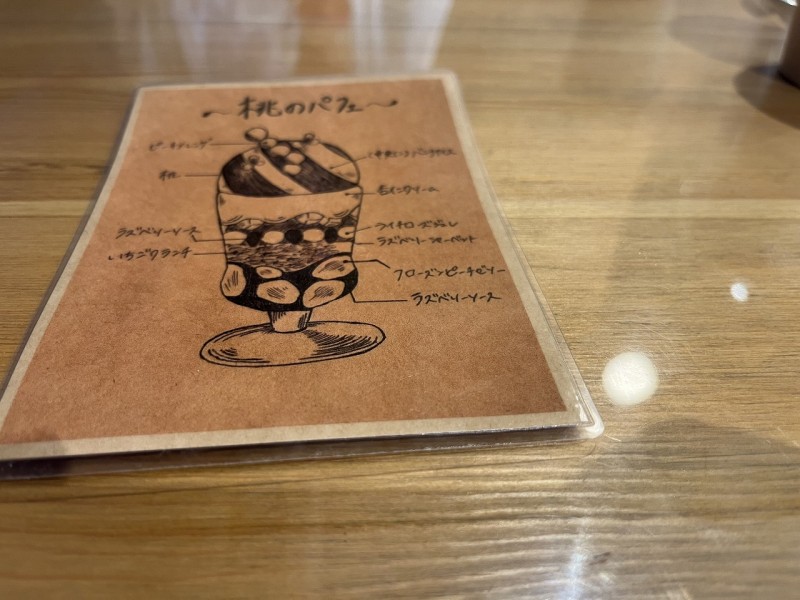 ～桃のパフェ～
桃
ラズベリーソース
いちごクランチ
生クリーム
ライチローズジュレ
ラズベリーシャーベット
フローズンピーチゼリー
ラズベリーソース